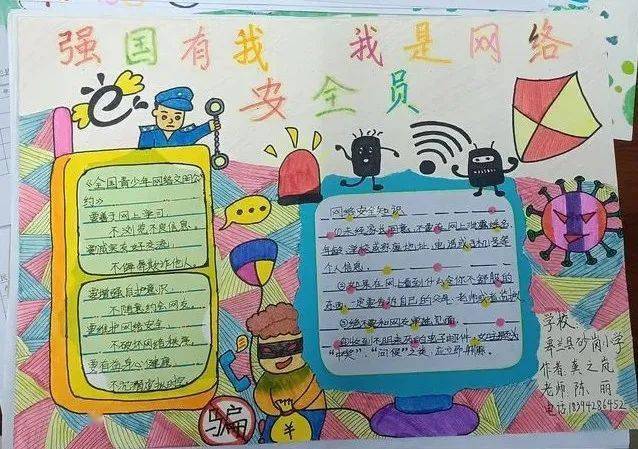 强国有我 我是网络
安全员
《全国青少年网络文明公
约》
要善于网上学习
不浏览不良信息
要诚实友好交流
不侮辱欺诈他人
要增强自护意识
不随意约会网友
要维护网络安全
不破坏网络秩序
要有益身心健康
不沉溺虚拟时空
网络安全知识
①未经家长同意，不要在网上泄露姓名、
年龄、学校或家庭地址、电话或手机号等
个人信息。
②如果在网上看到什么令你不舒服的
东西，一定要告诉自己的父母、老师或者监护
③绝不要和网友单独见面。
④收到不明来历的电子邮件，
"中奖"、"问候"之类，应立即删除。
骗
¥
学校：
县砂岗小学
作者：之岚
老师：陈丽
电话18394286452